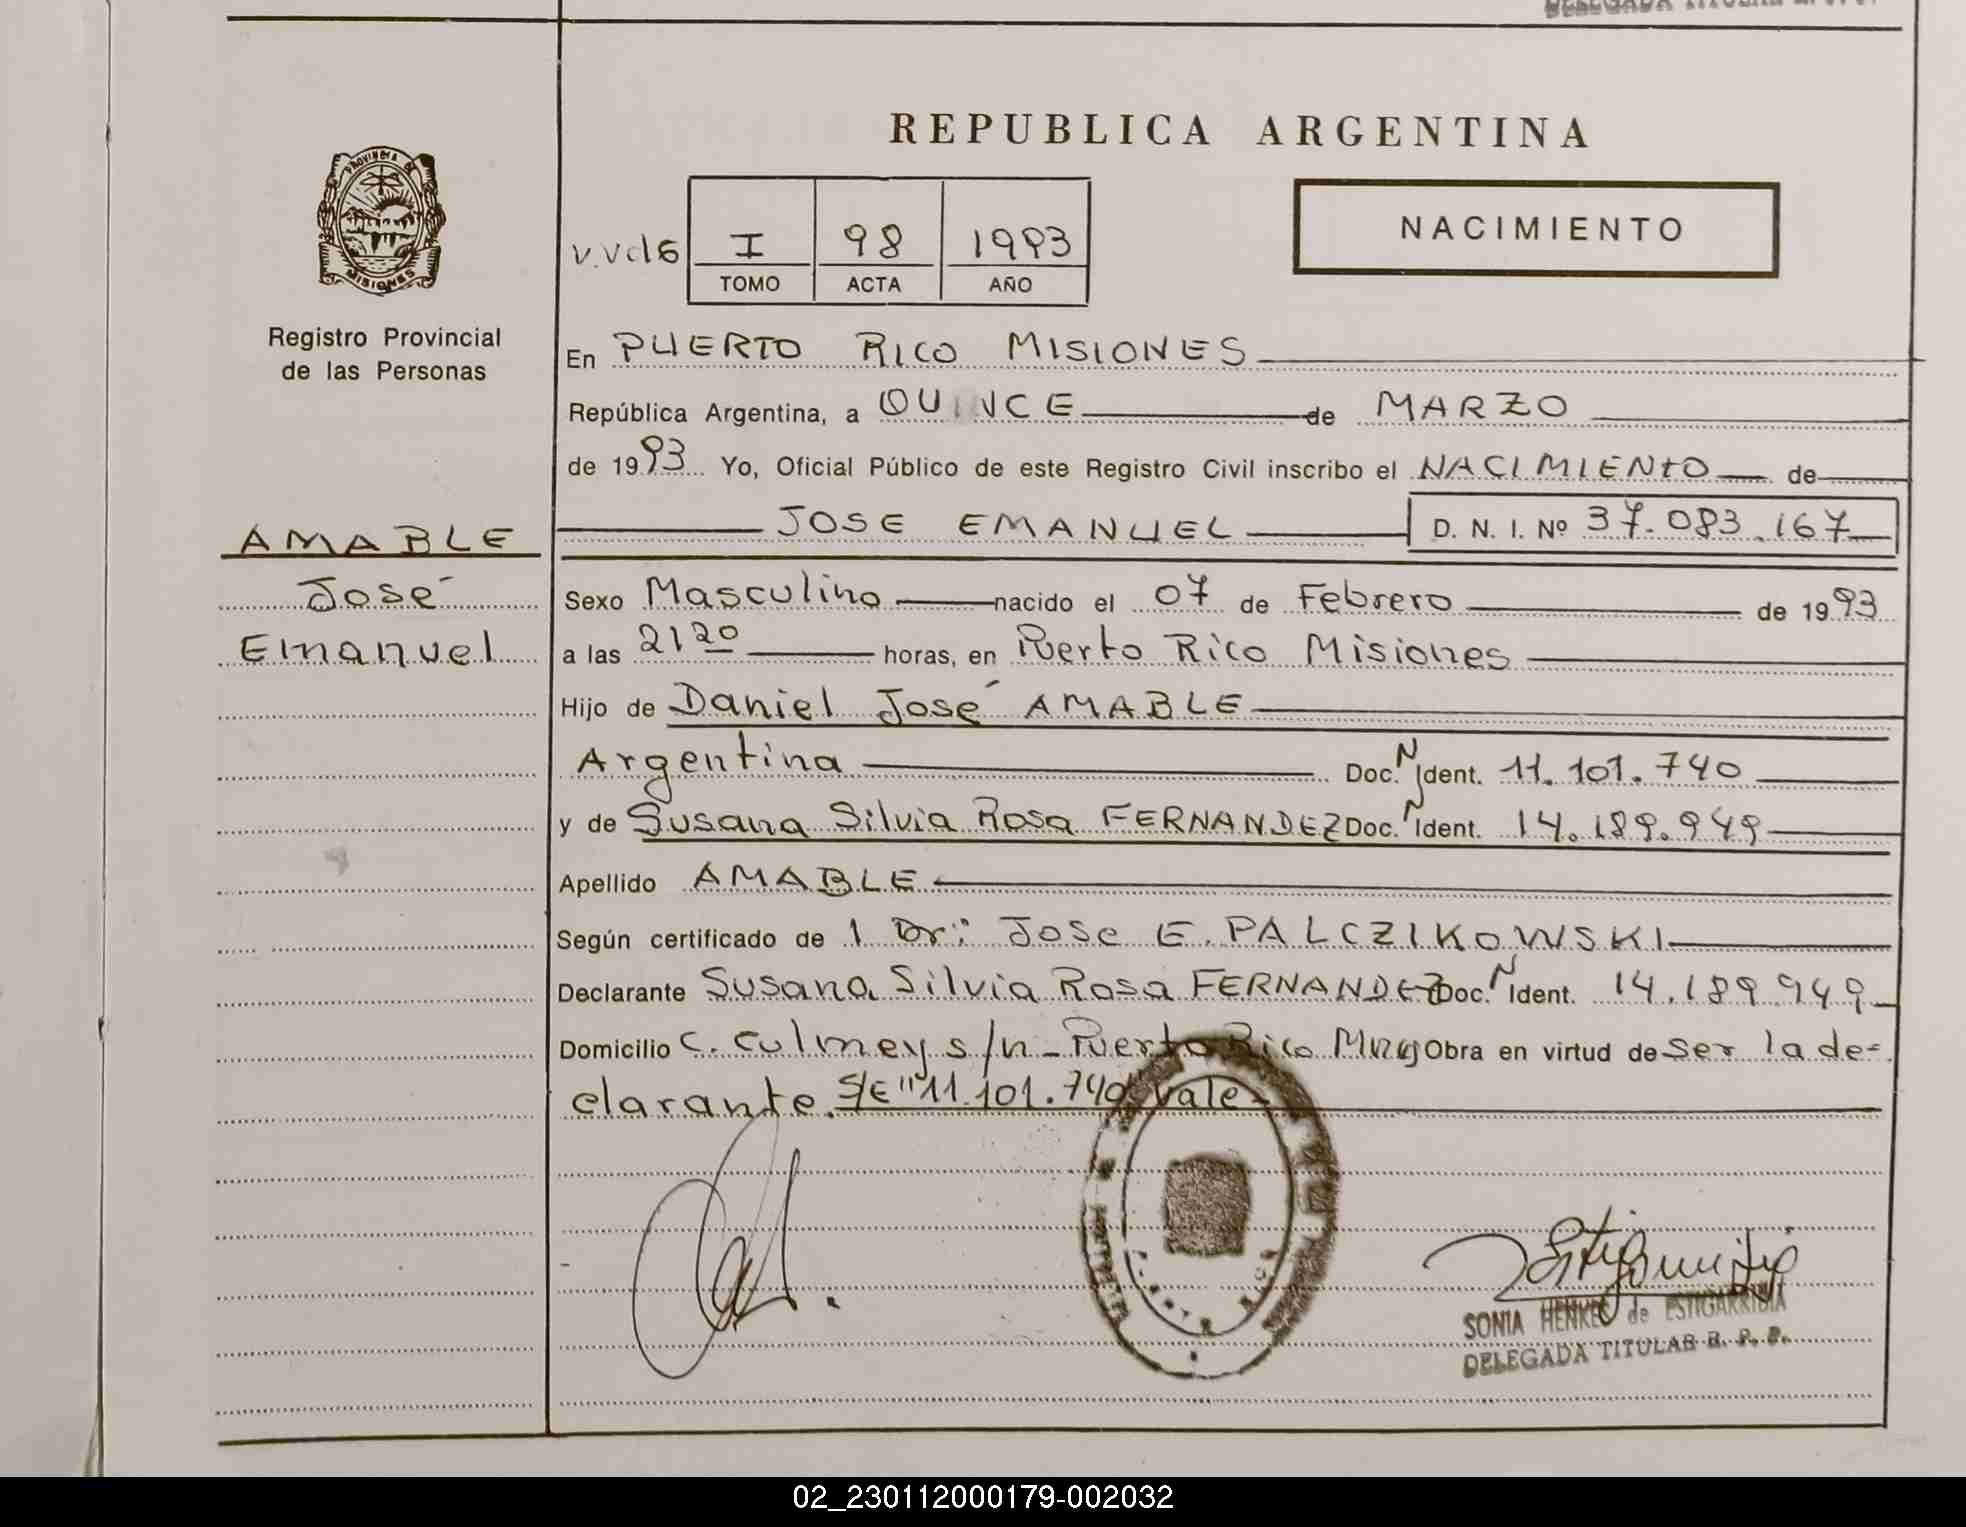 DELEGADA TITULAR R. P. P.
REPUBLICA ARGENTINA
PROVINCIA DE
MISIONES
Registro Provincial
de las Personas
I 98 1993
TOMO ACTA AÑO
NACIMIENTO
En PUERTO RICO MISIONES
República Argentina, a QUINCE de MARZO
de 1993 Yo, Oficial Público de este Registro Civil inscribo el NACIMIENTO de
JOSE EMANUEL D. N. I. Nº 37.083.167
AMABLE
José
Emanuel
Sexo Masculino nacido el 07 de Febrero de 1993
a las 21 20 horas, en Puerto Rico Misiones
Hijo de Daniel José AMABLE
Argentina Doc. N Ident. 11.101.740
y de Susana Silvia Rosa FERNANDEZ Doc. N Ident. 14.189.949
Apellido AMABLE
Según certificado de 1 Dr: Jose E. PALCZIKOWSKI
Declarante Susana Silvia Rosa FERNANDEZ Doc. N Ident. 14.189.949
Domicilio C. Culmey s/n - Puerto Rico Mnes Obra en virtud de ser la de-
clarante. S/E "11.101.740" Vale
SONIA HENKEL de ESTIGARRIBIA
DELEGADA TITULAR R. P. P.
02_230112000179-002032